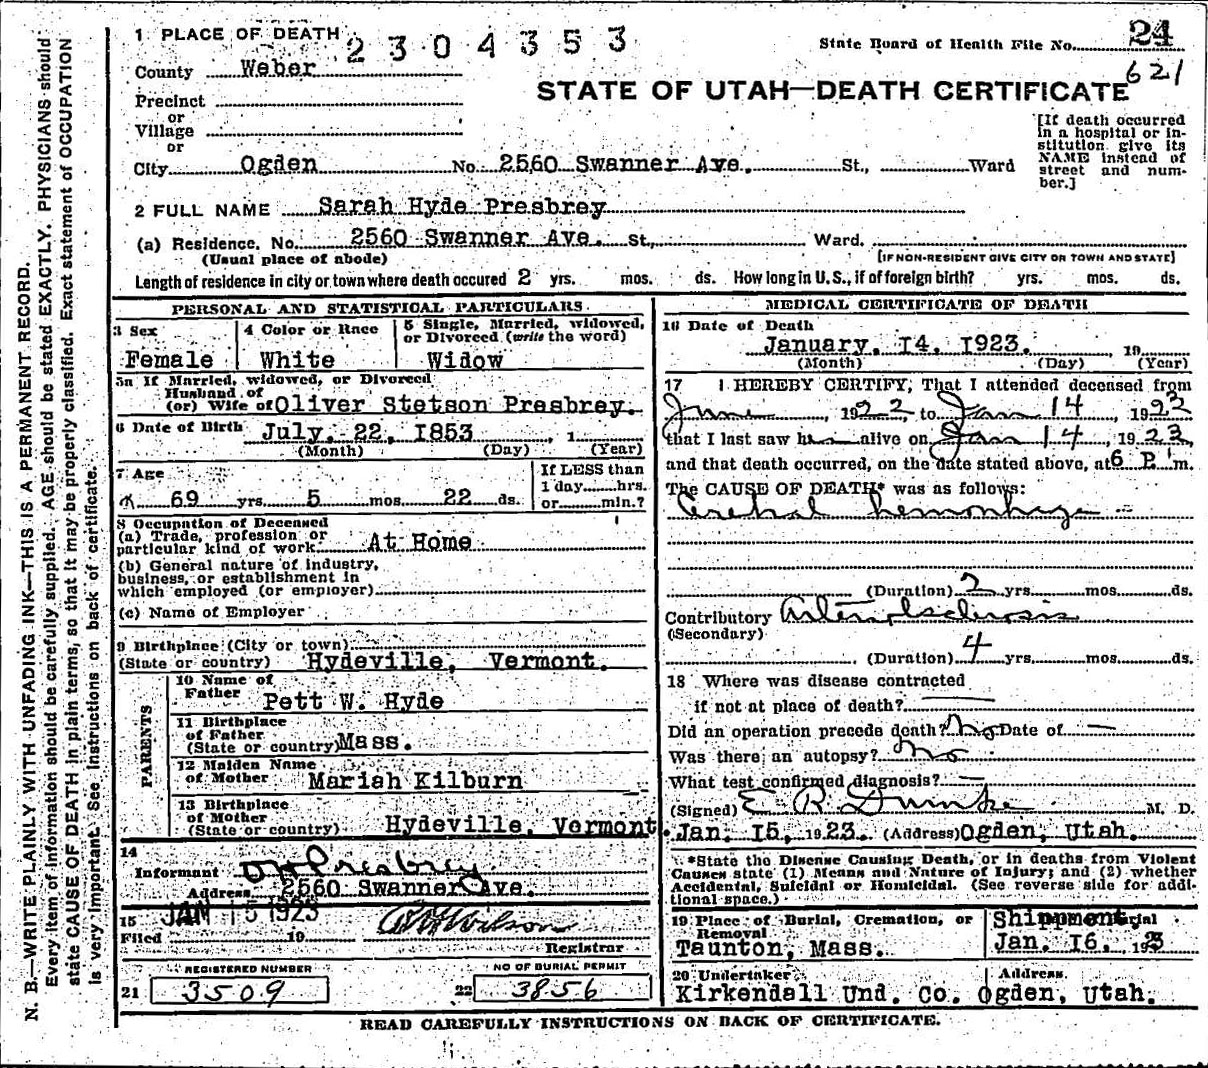 N. B.—WRITE PLAINLY WITH UNFADING INK—THIS IS A PERMANENT RECORD.
Every item of information should be carefully supplied. AGE should be stated EXACTLY. PHYSICIANS should
state CAUSE OF DEATH in plain terms, so that it may be properly classified. Exact statement of OCCUPATION
is very important. See instructions on back of certificate.
1 PLACE OF DEATH 2304353
State Board of Health File No. 24
621
County Weber
STATE OF UTAH—DEATH CERTIFICATE
Precinct
or
Village
or
City Ogden No. 2560 Swanner Ave. St., Ward
[If death occurred
in a hospital or in-
stitution give its
NAME instead of
street and num-
ber.]
2 FULL NAME Sarah Hyde Presbrey
(a) Residence. No. 2560 Swanner Ave. St., Ward.
(Usual place of abode) [IF NON-RESIDENT GIVE CITY OR TOWN AND STATE]
Length of residence in city or town where death occured 2 yrs. mos. ds. How long in U.S., if of foreign birth? yrs. mos. ds.
PERSONAL AND STATISTICAL PARTICULARS.
3 Sex
Female
4 Color or Race
White
5 Single, Married, widowed,
or Divorced (write the word)
Widow
5a If Married, widowed, or Divorced
Husband of
(or) Wife of Oliver Stetson Presbrey.
6 Date of Birth July. 22, 1853, 1
(Month) (Day) (Year)
7 Age
69 yrs. 5 mos. 22 ds.
If LESS than
1 day hrs.
or min.?
8 Occupation of Deceased
(a) Trade, profession or
particular kind of work At Home
(b) General nature of industry,
business, or establishment in
which employed (or employer)
(c) Name of Employer
9 Birthplace (City or town)
(State or country) Hydeville, Vermont.
PARENTS
10 Name of
Father Pett W. Hyde
11 Birthplace
of Father
(State or country) Mass.
12 Maiden Name
of Mother Mariah Kilburn
13 Birthplace
of Mother
(State or country) Hydeville, Vermont.
14
Informant Presbrey
Address 2560 Swanner Ave.
15 JAN 15 1923
Filed 19
Wilson
Registrar
REGISTERED NUMBER
21 3509
NO OF BURIAL PERMIT
22 3856
MEDICAL CERTIFICATE OF DEATH
16 Date of Death
January. 14. 1923. , 19
(Month) (Day) (Year)
17 I HEREBY CERTIFY, That I attended deceased from
June, 1922 to Jan 14, 1923
that I last saw her alive on Jan 14, 1923,
and that death occurred, on the date stated above, at 6 P. m.
The CAUSE OF DEATH* was as follows:
Cerebral hemorrhage —
(Duration) 2 yrs. mos. ds.
Contributory Arteriosclerosis
(Secondary)
(Duration) 4 yrs. mos. ds.
18 Where was disease contracted
if not at place of death? —
Did an operation precede death? No Date of —
Was there an autopsy? no
What test confirmed diagnosis? —
(Signed) E. R. Dumke M. D.
Jan. 15, 1923. (Address) Ogden, Utah.
*State the Disease Causing Death, or in deaths from Violent
Causes state (1) Means and Nature of Injury; and (2) whether
Accidental, Suicidal or Homicidal. (See reverse side for addi-
tional space.)
19 Place of Burial, Cremation, or
Removal
Taunton, Mass.
Shippment,
Jan. 16. 193
20 Undertaker Address
Kirkendall Und. Co. Ogden, Utah.
READ CAREFULLY INSTRUCTIONS ON BACK OF CERTIFICATE.